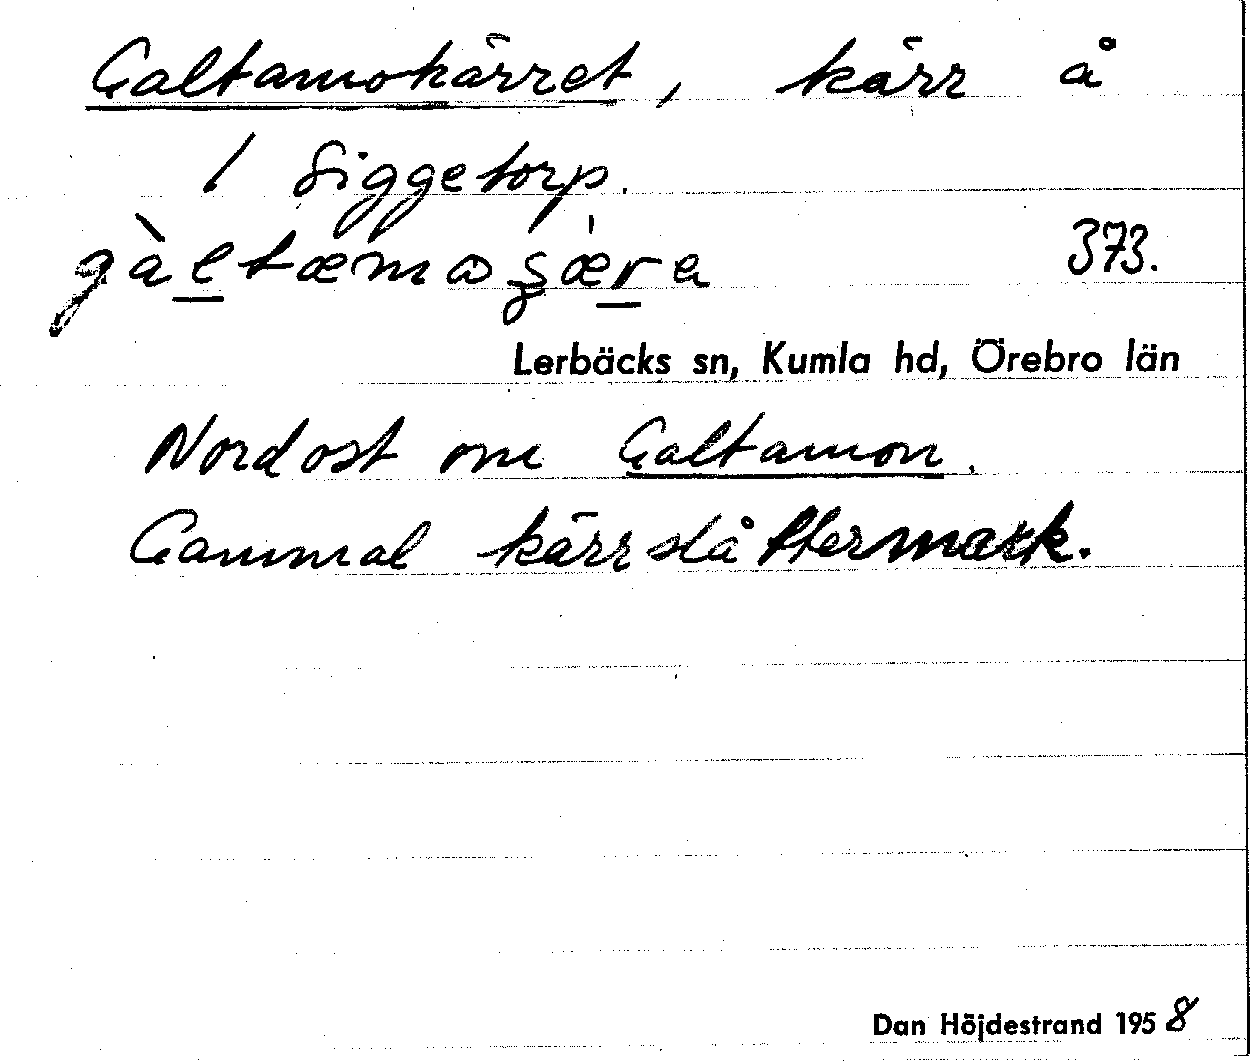 Galtamokärret, kärr å
1 Siggetorp.
gàltæmoʂæ̀ra 373.
Lerbäcks sn, Kumla hd, Örebro län
Nordost om Galtamon.
Gammal kärrslåttermark.
Dan Höjdestrand 1958